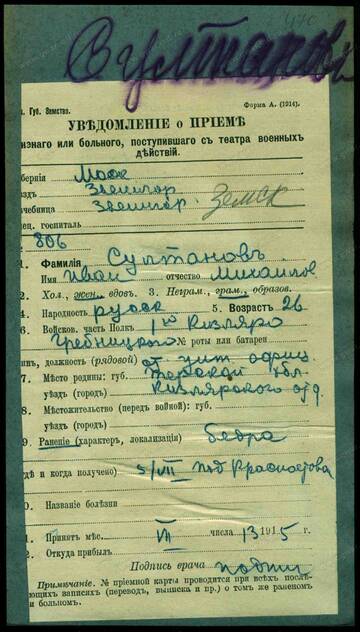 Султановъ
Губ. Земство. Форма А. (1914).
УВѢДОМЛЕНІЕ о ПРІЕМѢ
ненаго или больного, поступившаго съ театра военныхъ
дѣйствій.
бернія Моск
здъ Звенигор
чебница Звенигор. Земск
ец. госпиталь
806
1. Фамилія Султановъ
Имя Иван отчество Михаилов
2. Хол., жен., вдовъ. 3. Неграм., грам., образов.
4. Народность русск 5. Возрастъ 26
6. Войсков. часть Полкъ 1го Кизляро
Гребницкого № роты или батареи
ин, должность (рядовой) ст. унт. офиц.
7. Мѣсто родины: губ. Терской обл.
уѣздъ (городъ) Кизлярского отд.
8. Мѣстожительство (передъ войной): губ.
уѣздъ (городъ)
9. Раненіе (характеръ, локализація) бедра
дѣ и когда получено) 5/VII под Красностова
0. Названіе болѣзни
1. Принятъ мѣс. VII числа 13 1915 г.
2. Откуда прибылъ
Подпись врача подпи
Примѣчаніе. № пріемной карты проводится при всѣхъ послѣ-
ющихъ записяхъ (переводъ, выписка и пр.) о томъ же раненомъ
и больномъ.